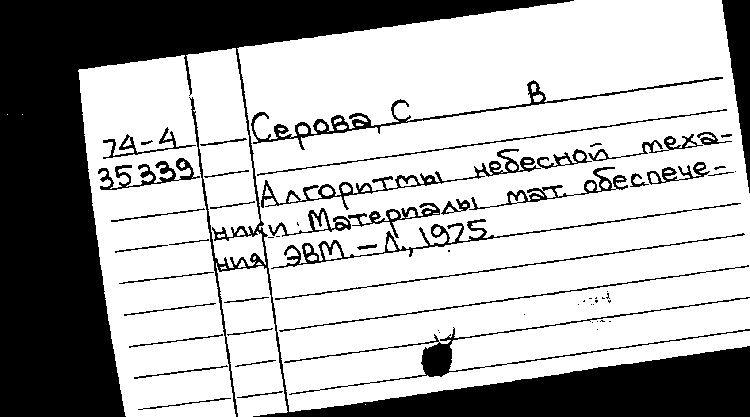 74-4
35339
Серова, С В
Алгоритмы небесной меха-
ники: Материалы мат. обеспече-
ния ЭВМ. - Л., 1975.